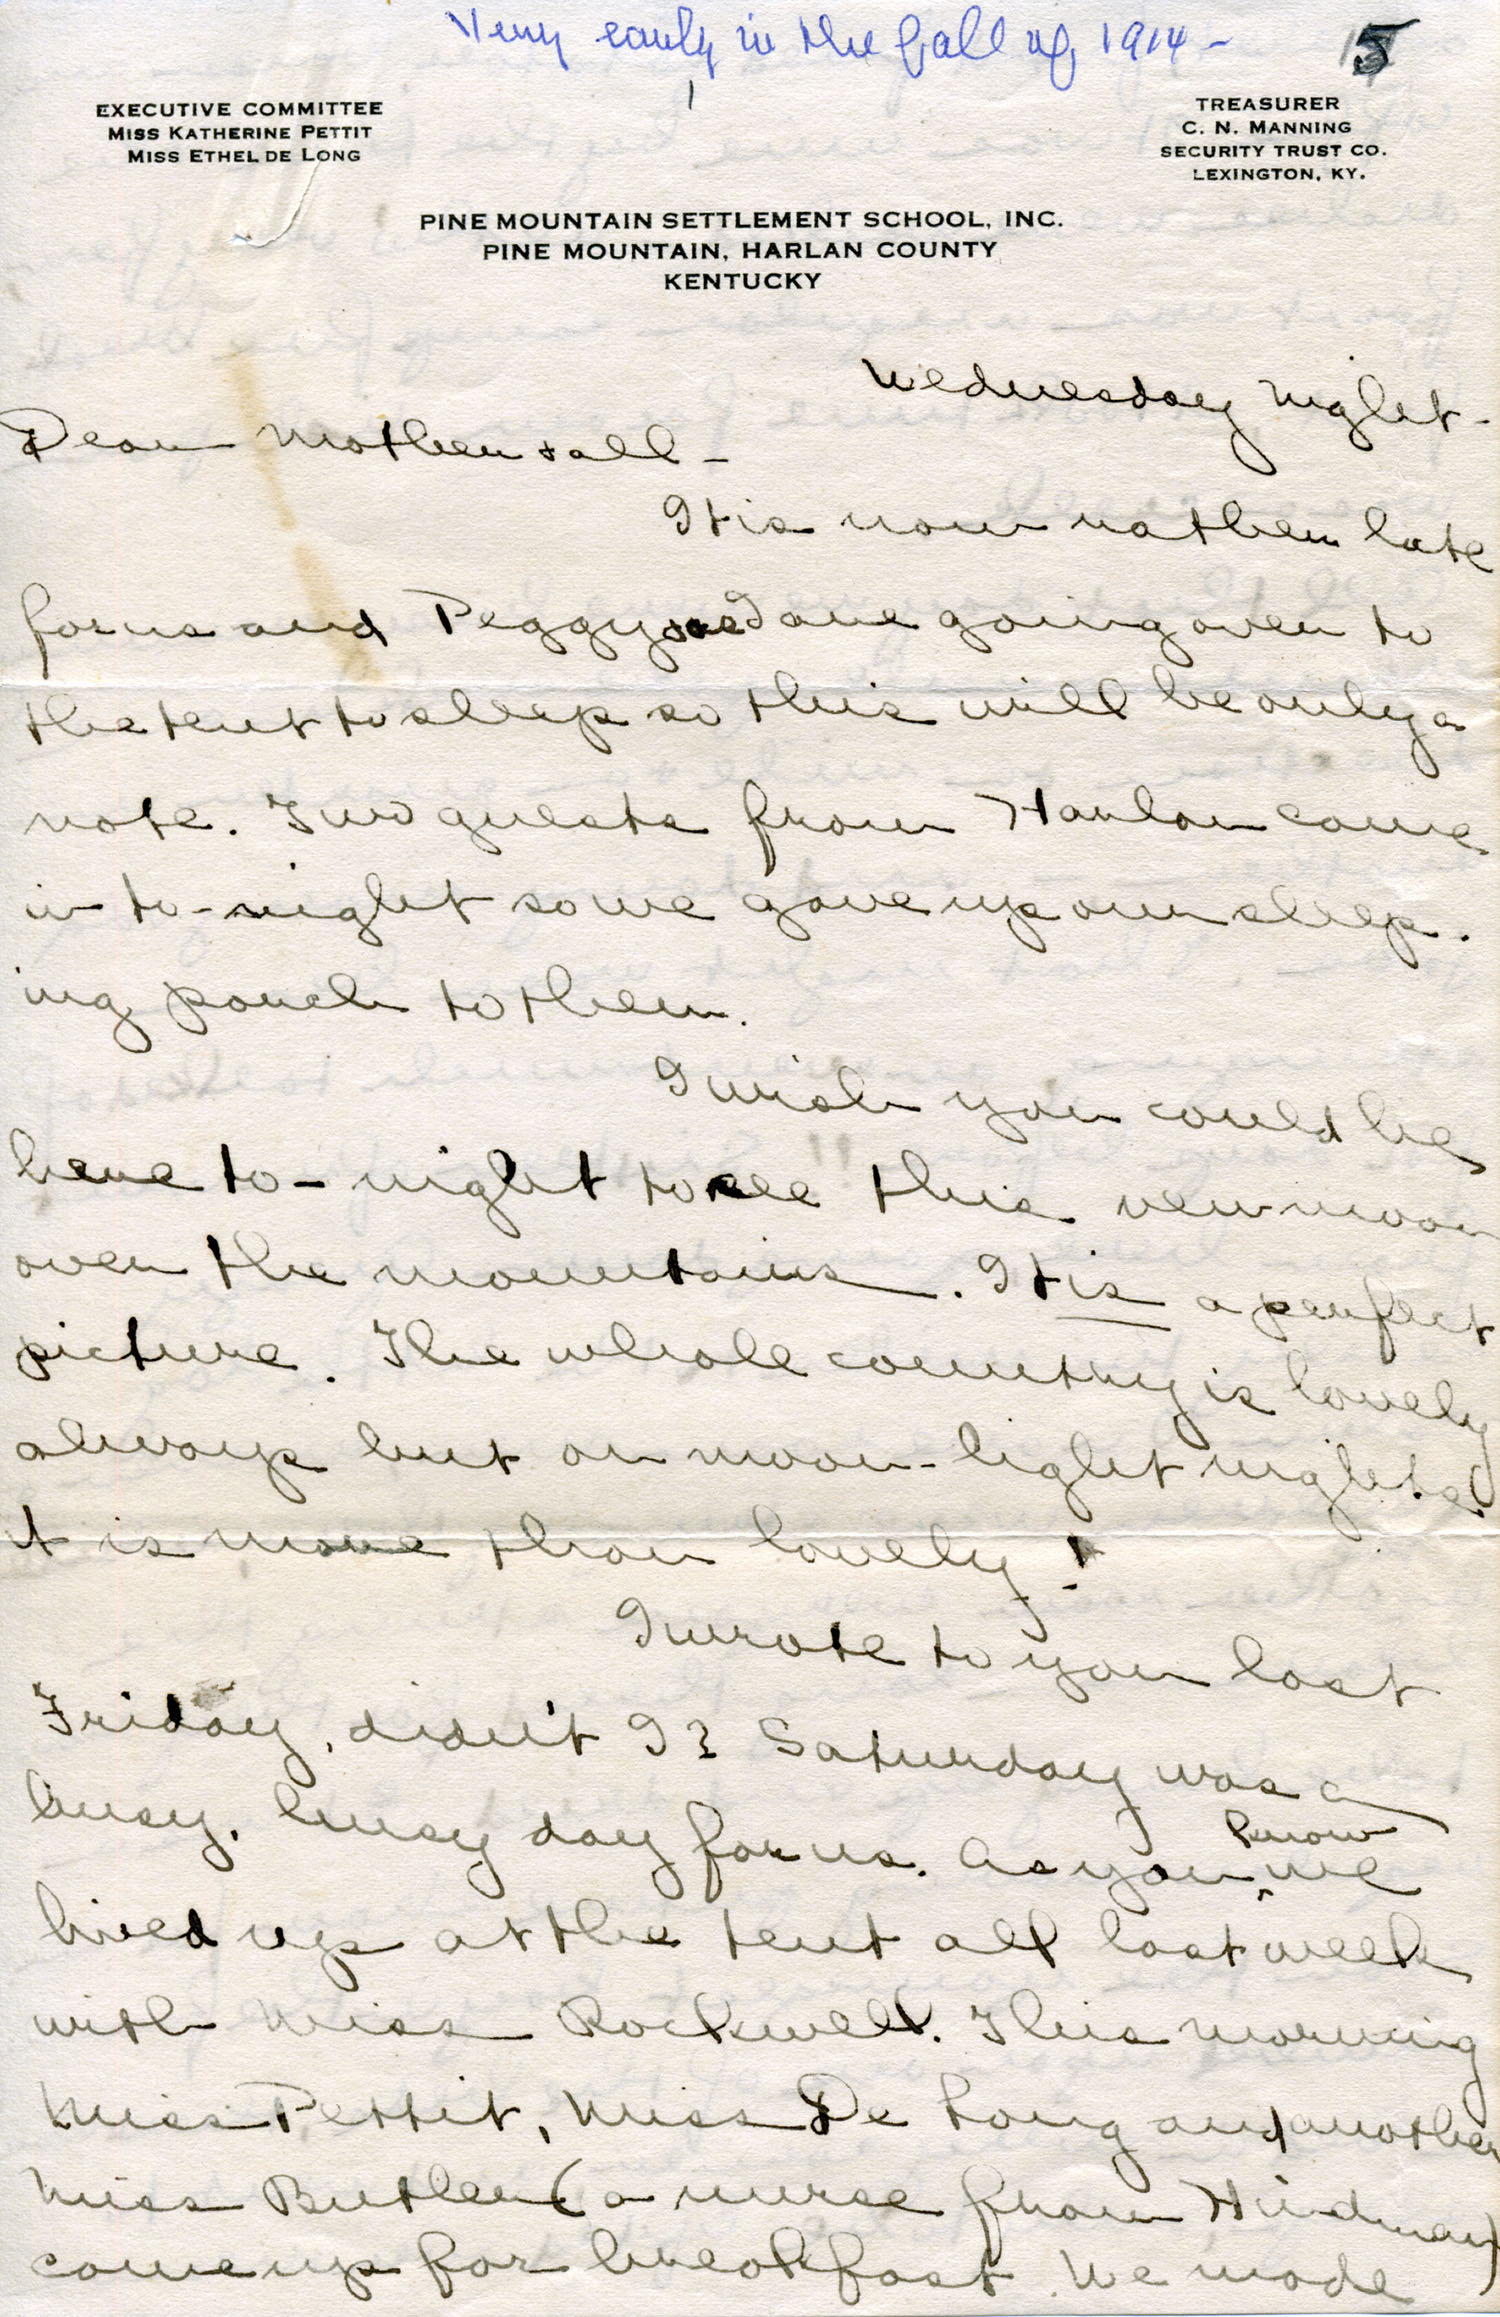 Very early in the fall of 1914 -
5
EXECUTIVE COMMITTEE
MISS KATHERINE PETTIT
MISS ETHEL DE LONG
TREASURER
C. N. MANNING
SECURITY TRUST CO.
LEXINGTON, KY.
PINE MOUNTAIN SETTLEMENT SCHOOL, INC.
PINE MOUNTAIN, HARLAN COUNTY
KENTUCKY
Wednesday night -
Dear Mother & all -
It is now rather late
for us and Peggy and I are going over to
the tent to sleep so this will be only a
note. Two guests from Harlan came
in to-night so we gave up our sleep-
ing porch to them.
I wish you could be
here to-night to see this new moon
over the mountains. It is a perfect
picture. The whole country is lovely
always but on moon-light nights
it is more than lovely!
I wrote to you last
Friday, didn't I? Saturday was a
busy, busy day for us. As you know we
lived up at the tent all last week
with Miss Rockwell. This morning
Miss Pettit, Miss De Long and another
Miss Butler (a nurse from Hindman)
came up for breakfast. We made